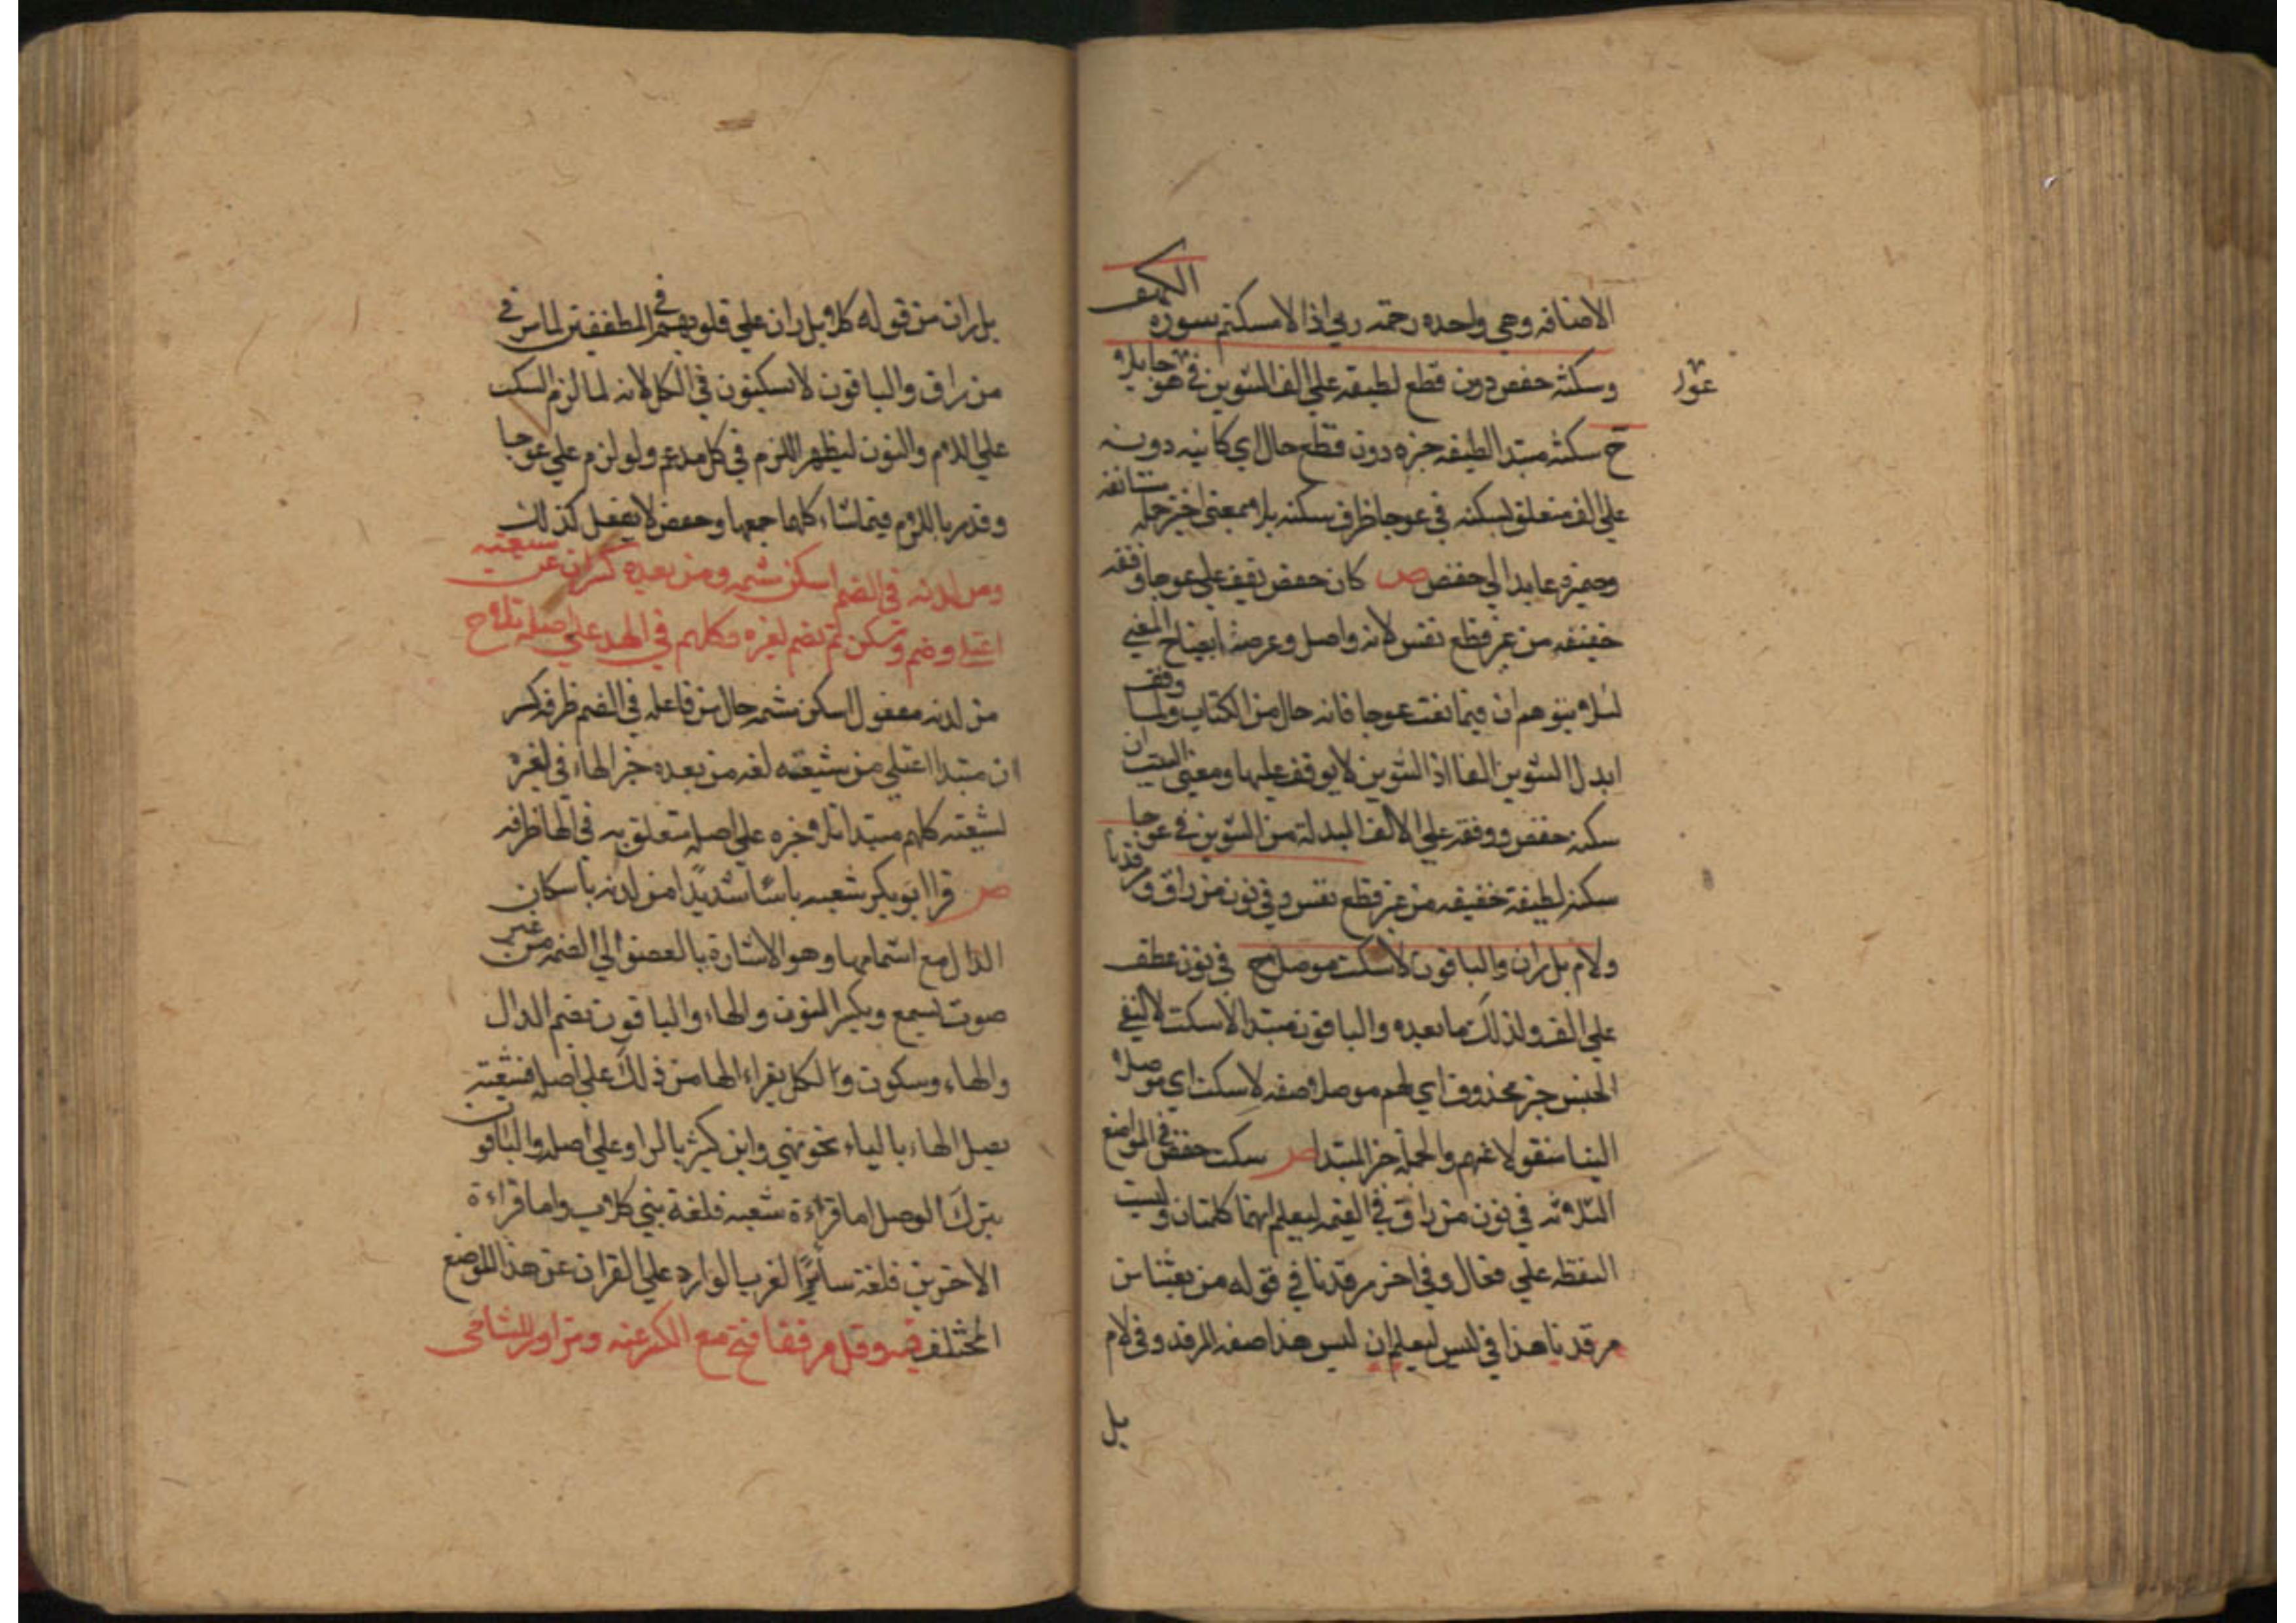 الاضافه وهي واحده رحمة ربي اذا لامسكتم سورة الكهف
وسكتة حفص دون قطع لطيفه علي الف التنوين في عوجا بلا
ح سكتة مبتدا لطيفه خبره دون قطع حال اي كاينه دونه
علي الف متعلق بسكته في عوجا ظرف سكته بلا بمعني اختر جملة مستانفه
وضميره عايد الي حفص ص كان حفص يقف علي عوجا وقفه
خفيفه من غير قطع نفس لانه واصل وغرضه ايضاح المعني
لئلا يتوهم ان قيما نعت عوجا فانه حال من الكتاب ولما وقف
ابدل التنوين الفا اذ التنوين لا يوقف عليها ومعني البيت ان
سكته حفص ووقفه علي الالف المبدلة من التنوين في عوجا
سكتة لطيفة خفيفه من غير قطع نفس وفي نون من راق ومرقدنا
ولام بل ران والباقون لا سكت موصلا ح في نون عطف
علي الف ولذلك ما بعده والباقون مبتدا لا سكت لا لنفي
الجنس خبره محذوف اي لهم موصلا صفه لا سكت اي موصلا
الينا منقولا عنهم والجملة خبر المبتدا ص سكت حفص في المواضع
الثلاثه في نون من راق في القيمه ليعلم انهما كلمتان وليست
اللفظه علي فعال وفي اخر مرقدنا في قوله من بعثنا من
مرقدنا هذا في يس ليعلم ان ليس هذا صفه للمرقد وفي لام
بل
بل ران من قوله كلا بل ران علي قلوبهم في المطففين لما مر في
من راق والباقون لا يسكتون في الكل لانه لما لزم السكت
علي اللام والنون ليظهر اللزم في كل مدغم ولو لزم علي عوجا
ومن لدنه في الضم اسكن مشمه ومن بعده كسران عن شعبة
اعتلي وضم وسكن ثم ضم لغيره وكلهم في الهاء علي اصله تلا ح
من لدنه مفعول اسكن مشمه حال من فاعله في الضم ظرفه كسر
ان مبتدا اعتلي من شعبته لغه من بعده خبر الهاء في لغيره
لشعبته كلهم مبتدا تلا خبره علي اصله متعلق به في الها ظرفه
ص قرا ابو بكر شعبه باسًا شديدًا من لدنه باسكان
الدال مع اشمامها وهو الاشارة بالعضو الي الضمه من غير
صوت يسمع وبكسر النون والهاء والباقون بضم الدال
والهاء وسكون و الكل يقراء الها من ذلك علي اصله فشعبته
يصل الهاء بالياء نحو بهي وابن كثير بالواو علي اصله والباقون
بترك الوصل اما قراءة شعبه فلغة بني كلاب واما قراءة
الاخرين فلغة ساير العرب الوارد علي القران عن هذا الموضع
المختلف فيه وقل مرفقا فتح مع الكسر عمه وتزاور للشامي